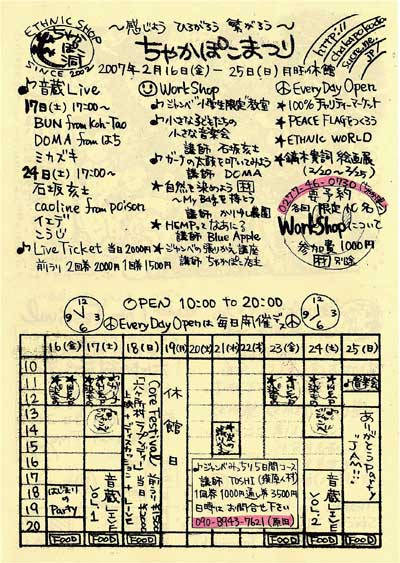 ETHNIC SHOP
ちゃかぽこ洞
SINCE 2002
～感じよう ひろがろう 繋がろう～
ちゃかぽこまつり
2007年2月16日(金)－25日(日)月旺休館
http://
♪音蔵Live
17日(土)17:00～
BUN from Koh-Tao
DOMA from はち
ミカヅキ
24日(土)17:00～
石坂亥士
caoline from poison
イエデ
こうじ
♪Live Ticket 当日2000円
前ラリ 2回券2000円1回券1500円
WorkShop
♪ジャンベ小学生限定教室
♪小さな子どもたちの
小さな音楽会
講師 石坂亥士
♪ガーナの太鼓を叩いてみよう
講師 DOMA
★自然を染めよう
～My Bagを持とう
講師 かりゆし農園
★HEMPってなあに？
講師 Blue Apple
★ジャンベの張りかえ講座
講師 ちゃかぽこ店主
Every Day Open
★100%チャリティーマーケット
★PEACE FLAGをつくろう
★ETHNIC WORLD
★鏑木貴詞 絵画展
(2/20～2/25)
0277-46-0730
要予約
各回/限定10名
WorkShopについて
参加費 1000円
材 別途
OPEN 10:00 to 20:00
Every Day Openは毎日開催
16(金) 17(土) 18(日) 19(月) 20(火) 21(水) 22(木) 23(金) 24(土) 25(日)
10
11
12
13
14
15
16
17
18
19
20
はじまりのParty
音蔵LIVE Vol.1
Core Festival
休館日
音蔵LIVE Vol.2
♪音楽会
ありがとうParty
"JAM!!"
♪ジャンベみっちり5日間コース
講師 TOSHI
1回券1000円通し券3500円
日時はお問合せ下さい
090-8943-7621(原田)
FOOD FOOD FOOD FOOD FOOD FOOD